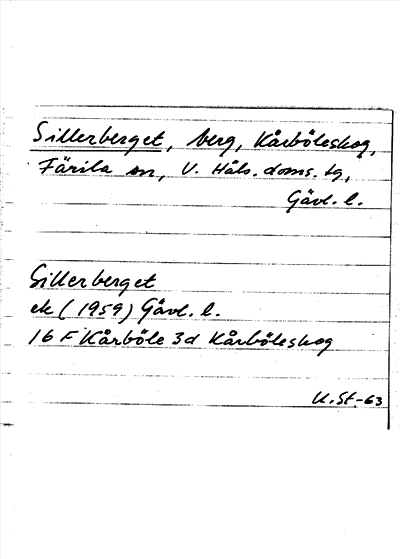 Sillerberget, berg, Kårböleskog,
Färila sn, V. Häls. doms. tg,
Gävl. l.
Sillerberget
ek (1959) Gävl. l.
16 F Kårböle 3d Kårböleskog
U.St-63